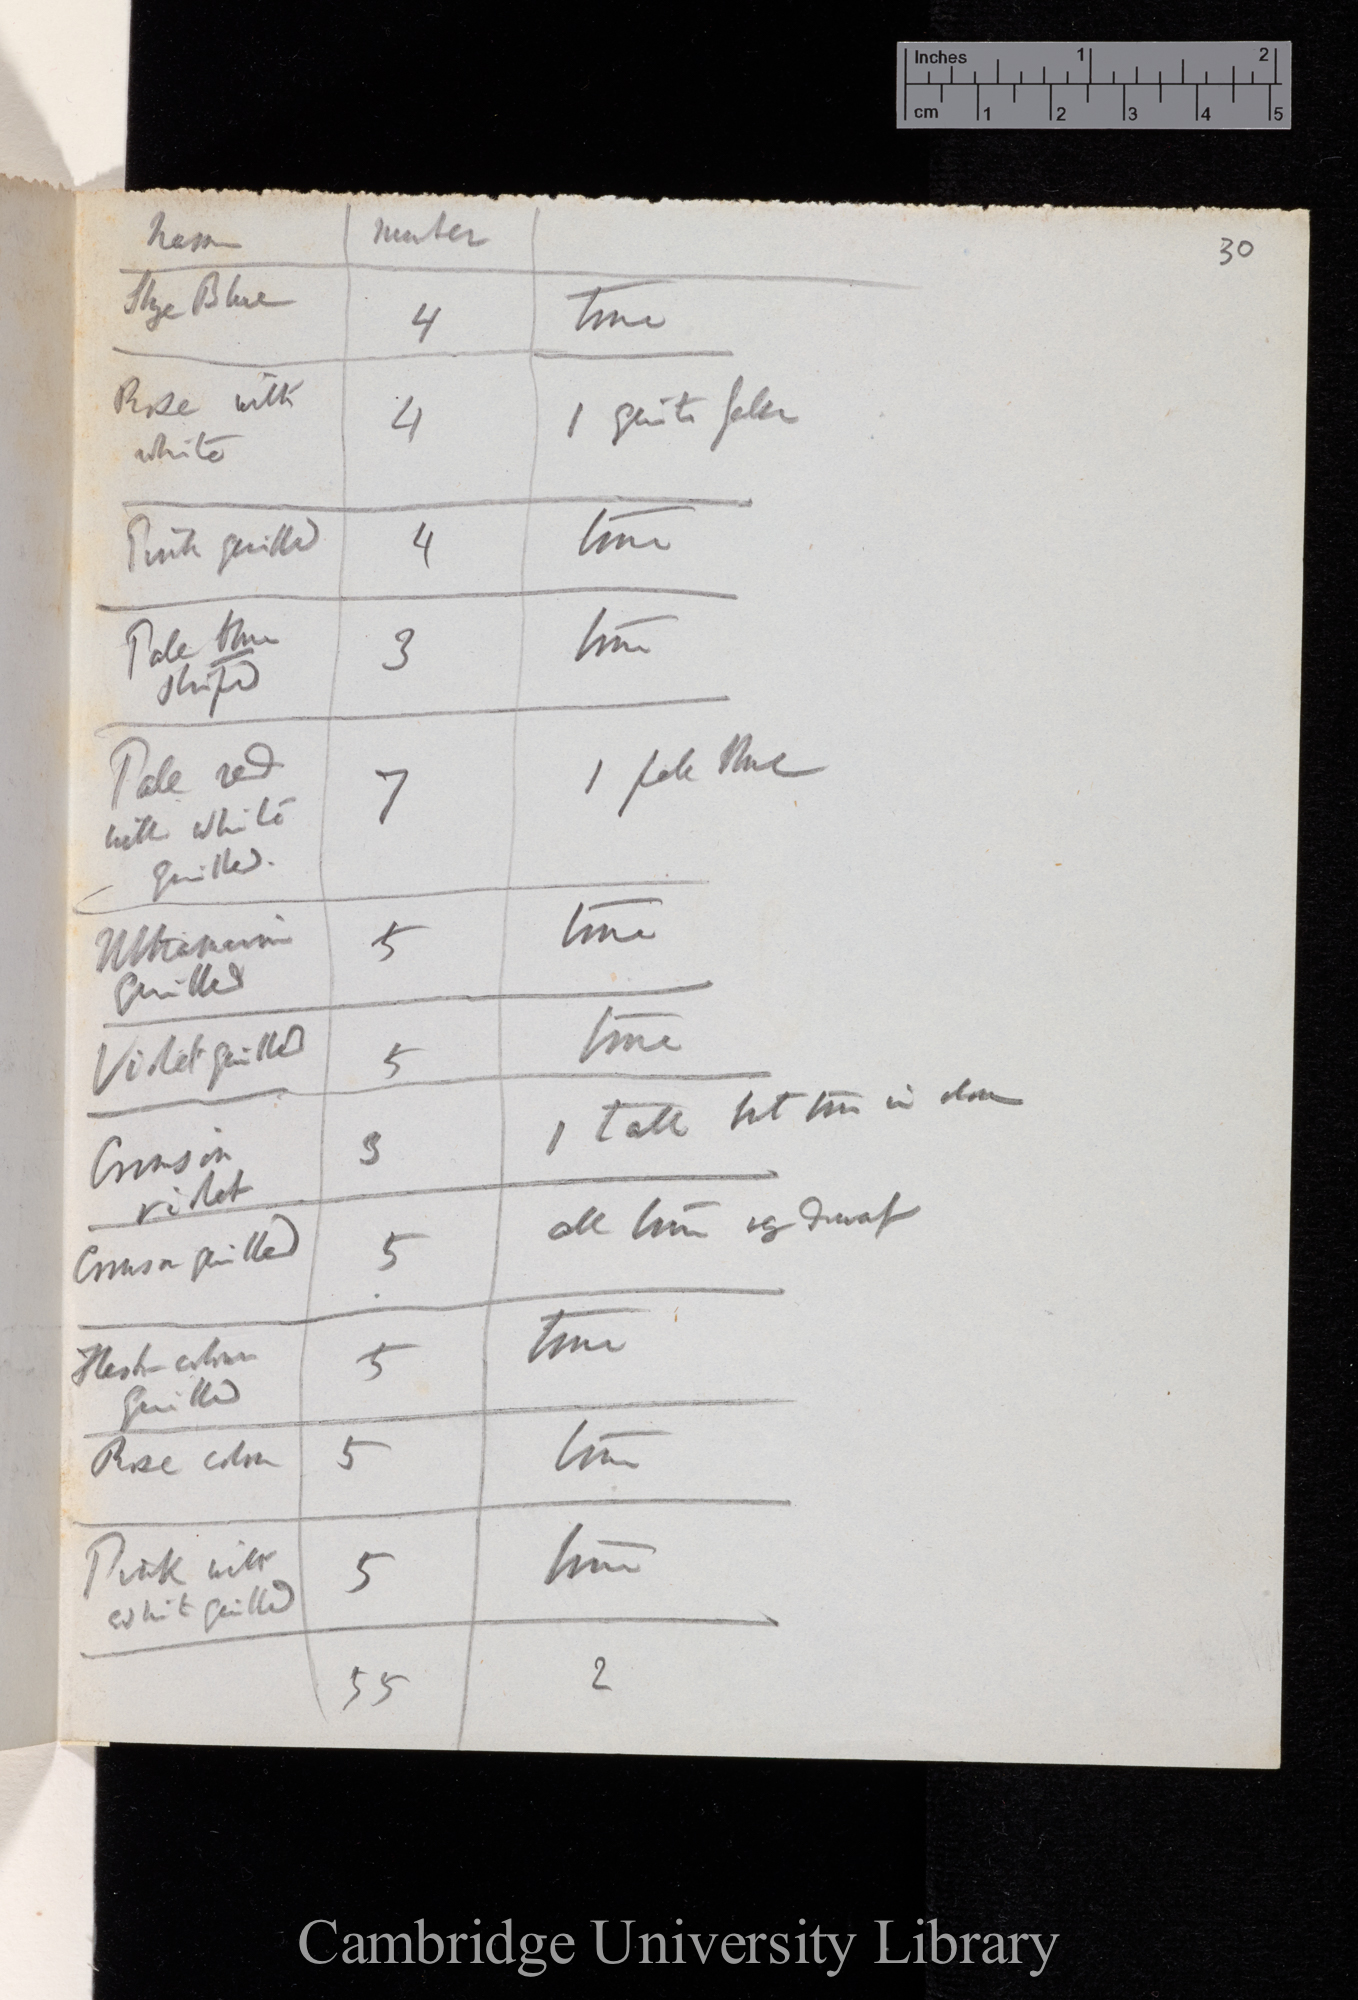 Inches 1 2
cm 1 2 3 4 5
30
Name number
Skye Blue 4 true
Rose with 4 1 quite false
white
Pink quilled 4 true
Pale blue 3 true
striped
Pale red 7 1 pale blue
with white
quilled.
Ultramarine 5 true
quilled
Violet quilled 5 true
Crimson 3 1 tall but true in colour
violet
Crimson quilled 5 all true dwarf
Flesh-colour 5 true
quilled
Rose colour 5 true
Pink with 5 true
white quilled
55 2
Cambridge University Library